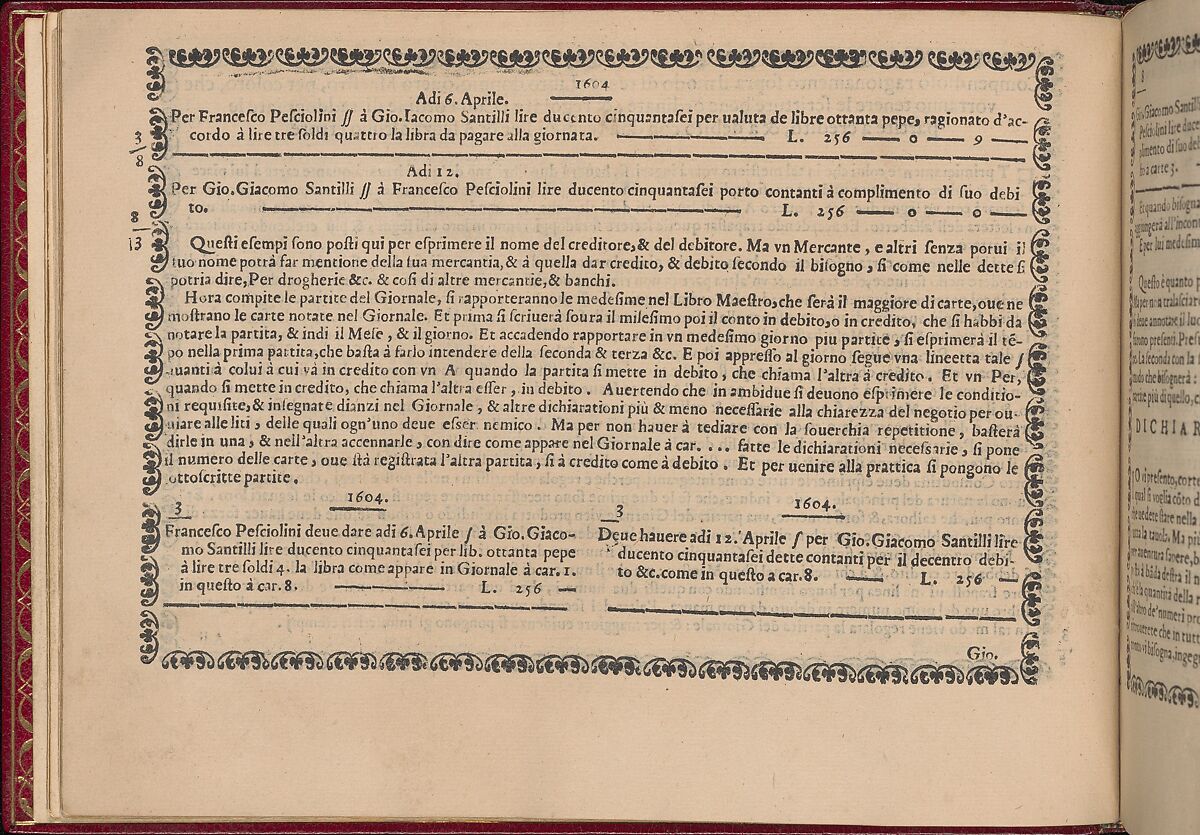 1604
Adi 6. Aprile.
Per Francesco Pesciolini // à Gio. Iacomo Santilli lire ducento cinquantasei per ualuta de libre ottanta pepe, ragionato d'ac-
3
8
cordo à lire tre soldi quattro la libra da pagare alla giornata. L. 256 — 0 — 9 —
Adi 12.
Per Gio. Giacomo Santilli // à Francesco Pesciolini lire ducento cinquantasei porto contanti à complimento di suo debi
8
13
to. L. 256 — 0 — 0 —
Questi esempi sono posti qui per esprimere il nome del creditore, & del debitore. Ma vn Mercante, e altri senza porui il
suo nome potrà far mentione della sua mercantia, & à quella dar credito, & debito secondo il bisogno, si come nelle dette si
potria dire, Per drogherie &c. & cosi di altre mercantie, & banchi.
Hora compite le partite del Giornale, si rapporteranno le medesime nel Libro Maestro, che serà il maggiore di carte, oue ne
mostrano le carte notate nel Giornale. Et prima si scriuerà soura il milesimo poi il conto in debito, o in credito, che si habbi da
notare la partita, & indi il Mese, & il giorno. Et accadendo rapportare in vn medesimo giorno piu partite, si esprimerà il tē-
po nella prima partita, che basta à farlo intendere della seconda & terza &c. E poi appresso al giorno segue vna lineetta tale /
uanti à colui à cui và in credito con vn A quando la partita si mette in debito, che chiama l'altra à credito. Et vn Per,
quando si mette in credito, che chiama l'altra esser, in debito. Auertendo che in ambidue si deuono esprimere le conditio-
ni requisite, & insegnate dianzi nel Giornale, & altre dichiarationi più & meno necessarie alla chiarezza del negotio per ou-
uiare alle liti, delle quali ogn'uno deue esser nemico. Ma per non hauer à tediare con la souerchia repetitione, basterà
dirle in una, & nell'altra accennarle, con dire come appare nel Giornale à car. . . . fatte le dichiarationi necessarie, si pone
il numero delle carte, oue stà registrata l'altra partita, si à credito come à debito. Et per uenire alla prattica si pongono le
ottoscritte partite.
3 1604.
Francesco Pesciolini deue dare adi 6. Aprile / à Gio. Giaco-
mo Santilli lire ducento cinquantasei per lib. ottanta pepe
à lire tre soldi 4. la libra come appare in Giornale à car. 1.
in questo à car. 8. L. 256 —
3 1604.
Deue hauere adi 12. Aprile / per Gio. Giacomo Santilli lire
ducento cinquantasei dette contanti per il decentro debi-
to &c. come in questo a car. 8. L. 256 —
Gio.
8
Gio. Giacomo Santill
Pesciolini lire duce
plimento di suo deb
to a carte 3.
Et quando bisogna
aggiungerà all'incon
E per lui medesimo
Questo è quanto p
DICHIAR